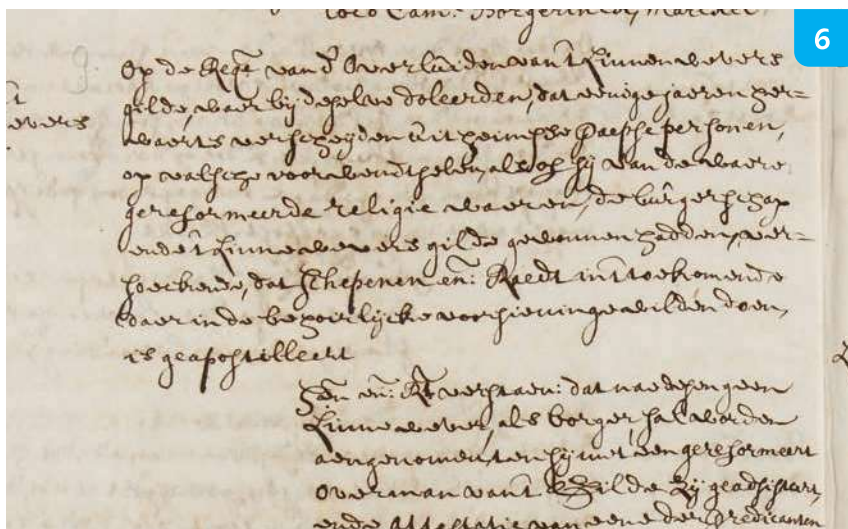 loco Cam. Borgerin
6
Op de Reqte vand' Overluiden van't Linnenwevers
gilde, waer bij deselve doleerden, dat eenige jaeren her=
waerts verscheyden uitheimse paepse personen,
evers
op valsche voorwendtselen, als of sij van de waere
gereformeerde religie waeren, de bùrgerschap
ende 't Linnewevers gilde gewonnen hadden, ver=
soeckende, dat Schepenen en: Raedt in 't toekomende
daer in de behoirlijcke voorsieninge wilden doen,
is geapostilleert
Sn en: Rt verstaen: dat nae desen geen
Linnewever, als borger, sal worden
aengenomen, ten sij met een gereformeert
overman van't Gilde zij geadsisteert,
ende attestatie van eene der Predicanten